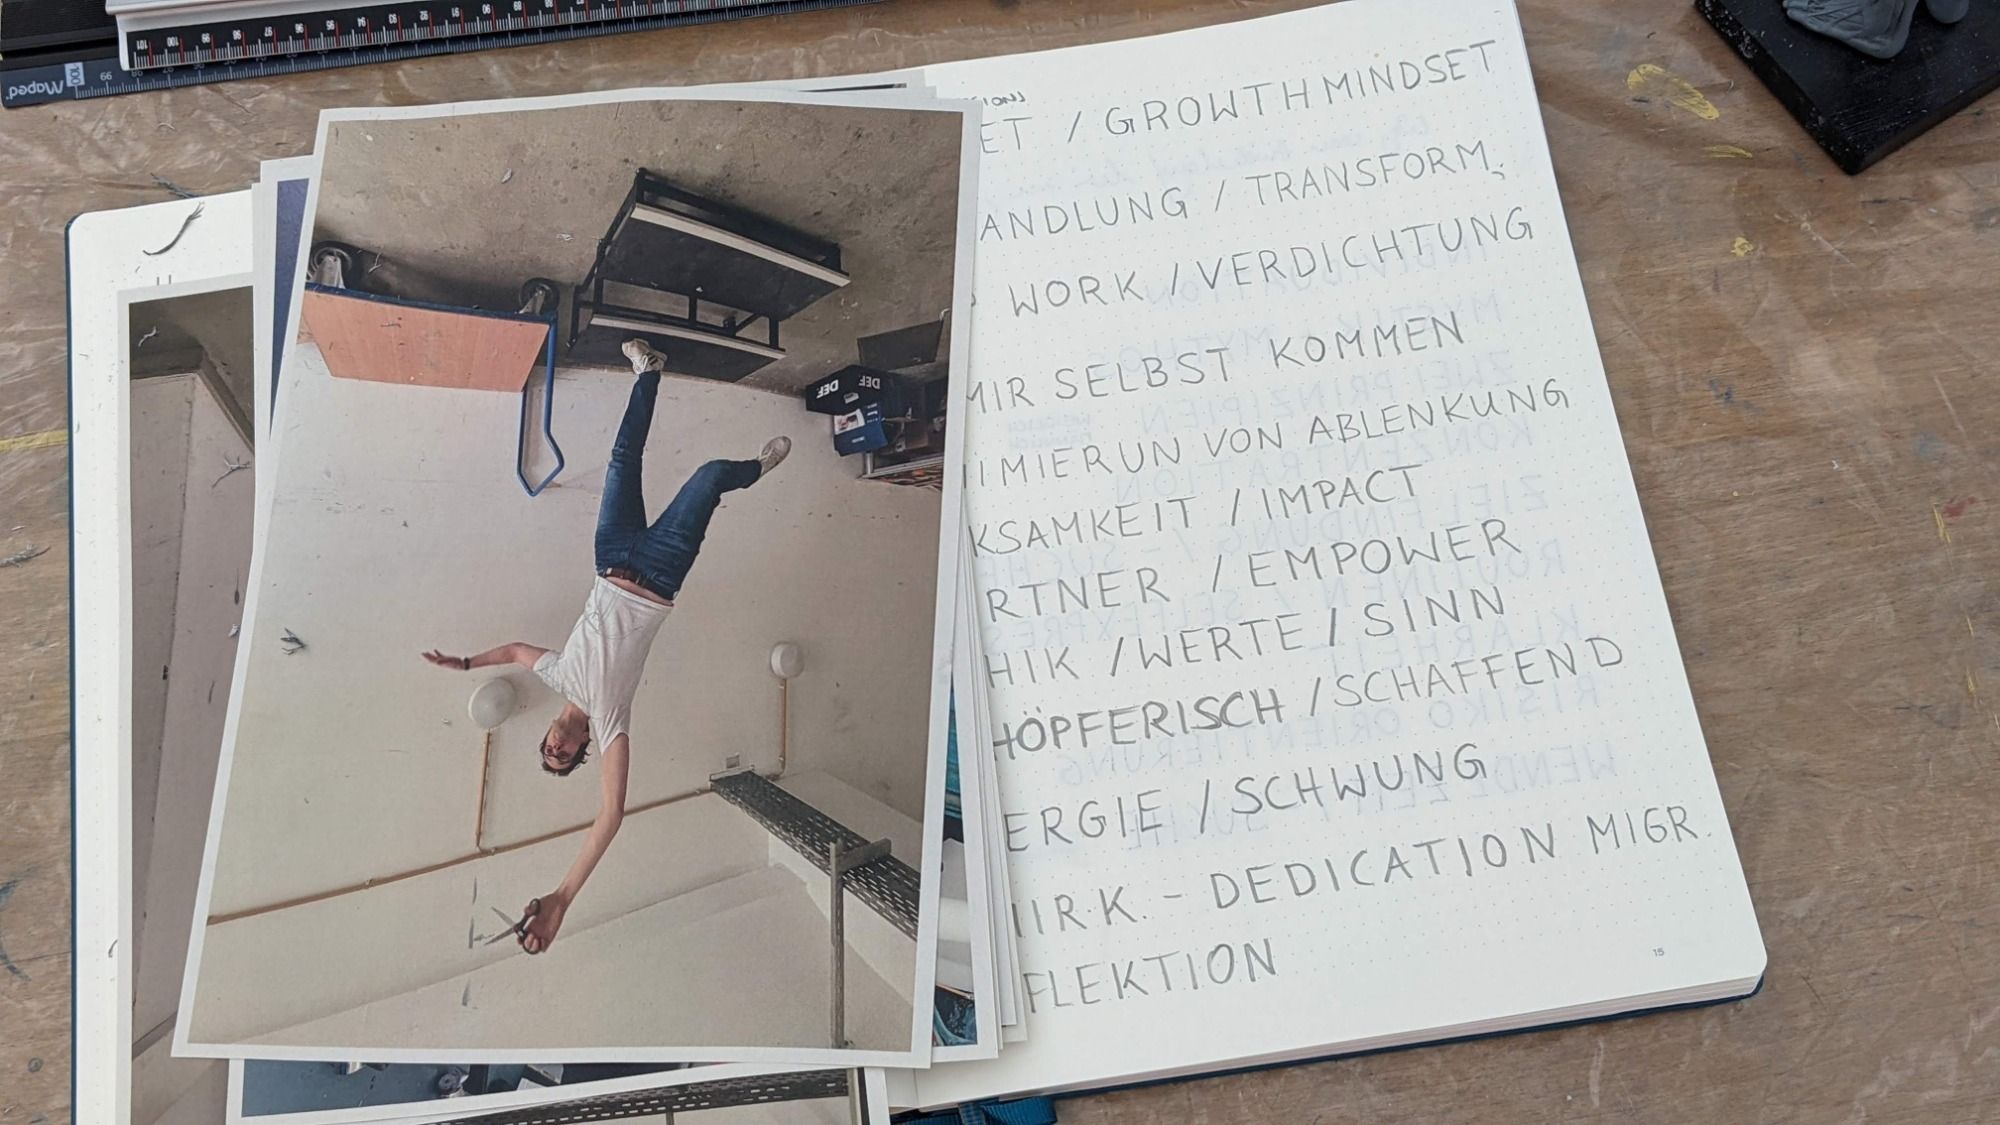 ET / GROWTHMINDSET
ANDLUNG / TRANSFORM.
WORK / VERDICHTUNG
MIR SELBST KOMMEN
IMIERUN VON ABLENKUNG
KSAMKEIT / IMPACT
RTNER / EMPOWER
HIK / WERTE / SINN
HÖPFERISCH / SCHAFFEND
ERGIE / SCHWUNG
IRK. - DEDICATION MIGR.
FLEKTION
15
Maped
100 99
101 100 99 98 97 96 95 94 93 92 91 90 89
DEF. DEF